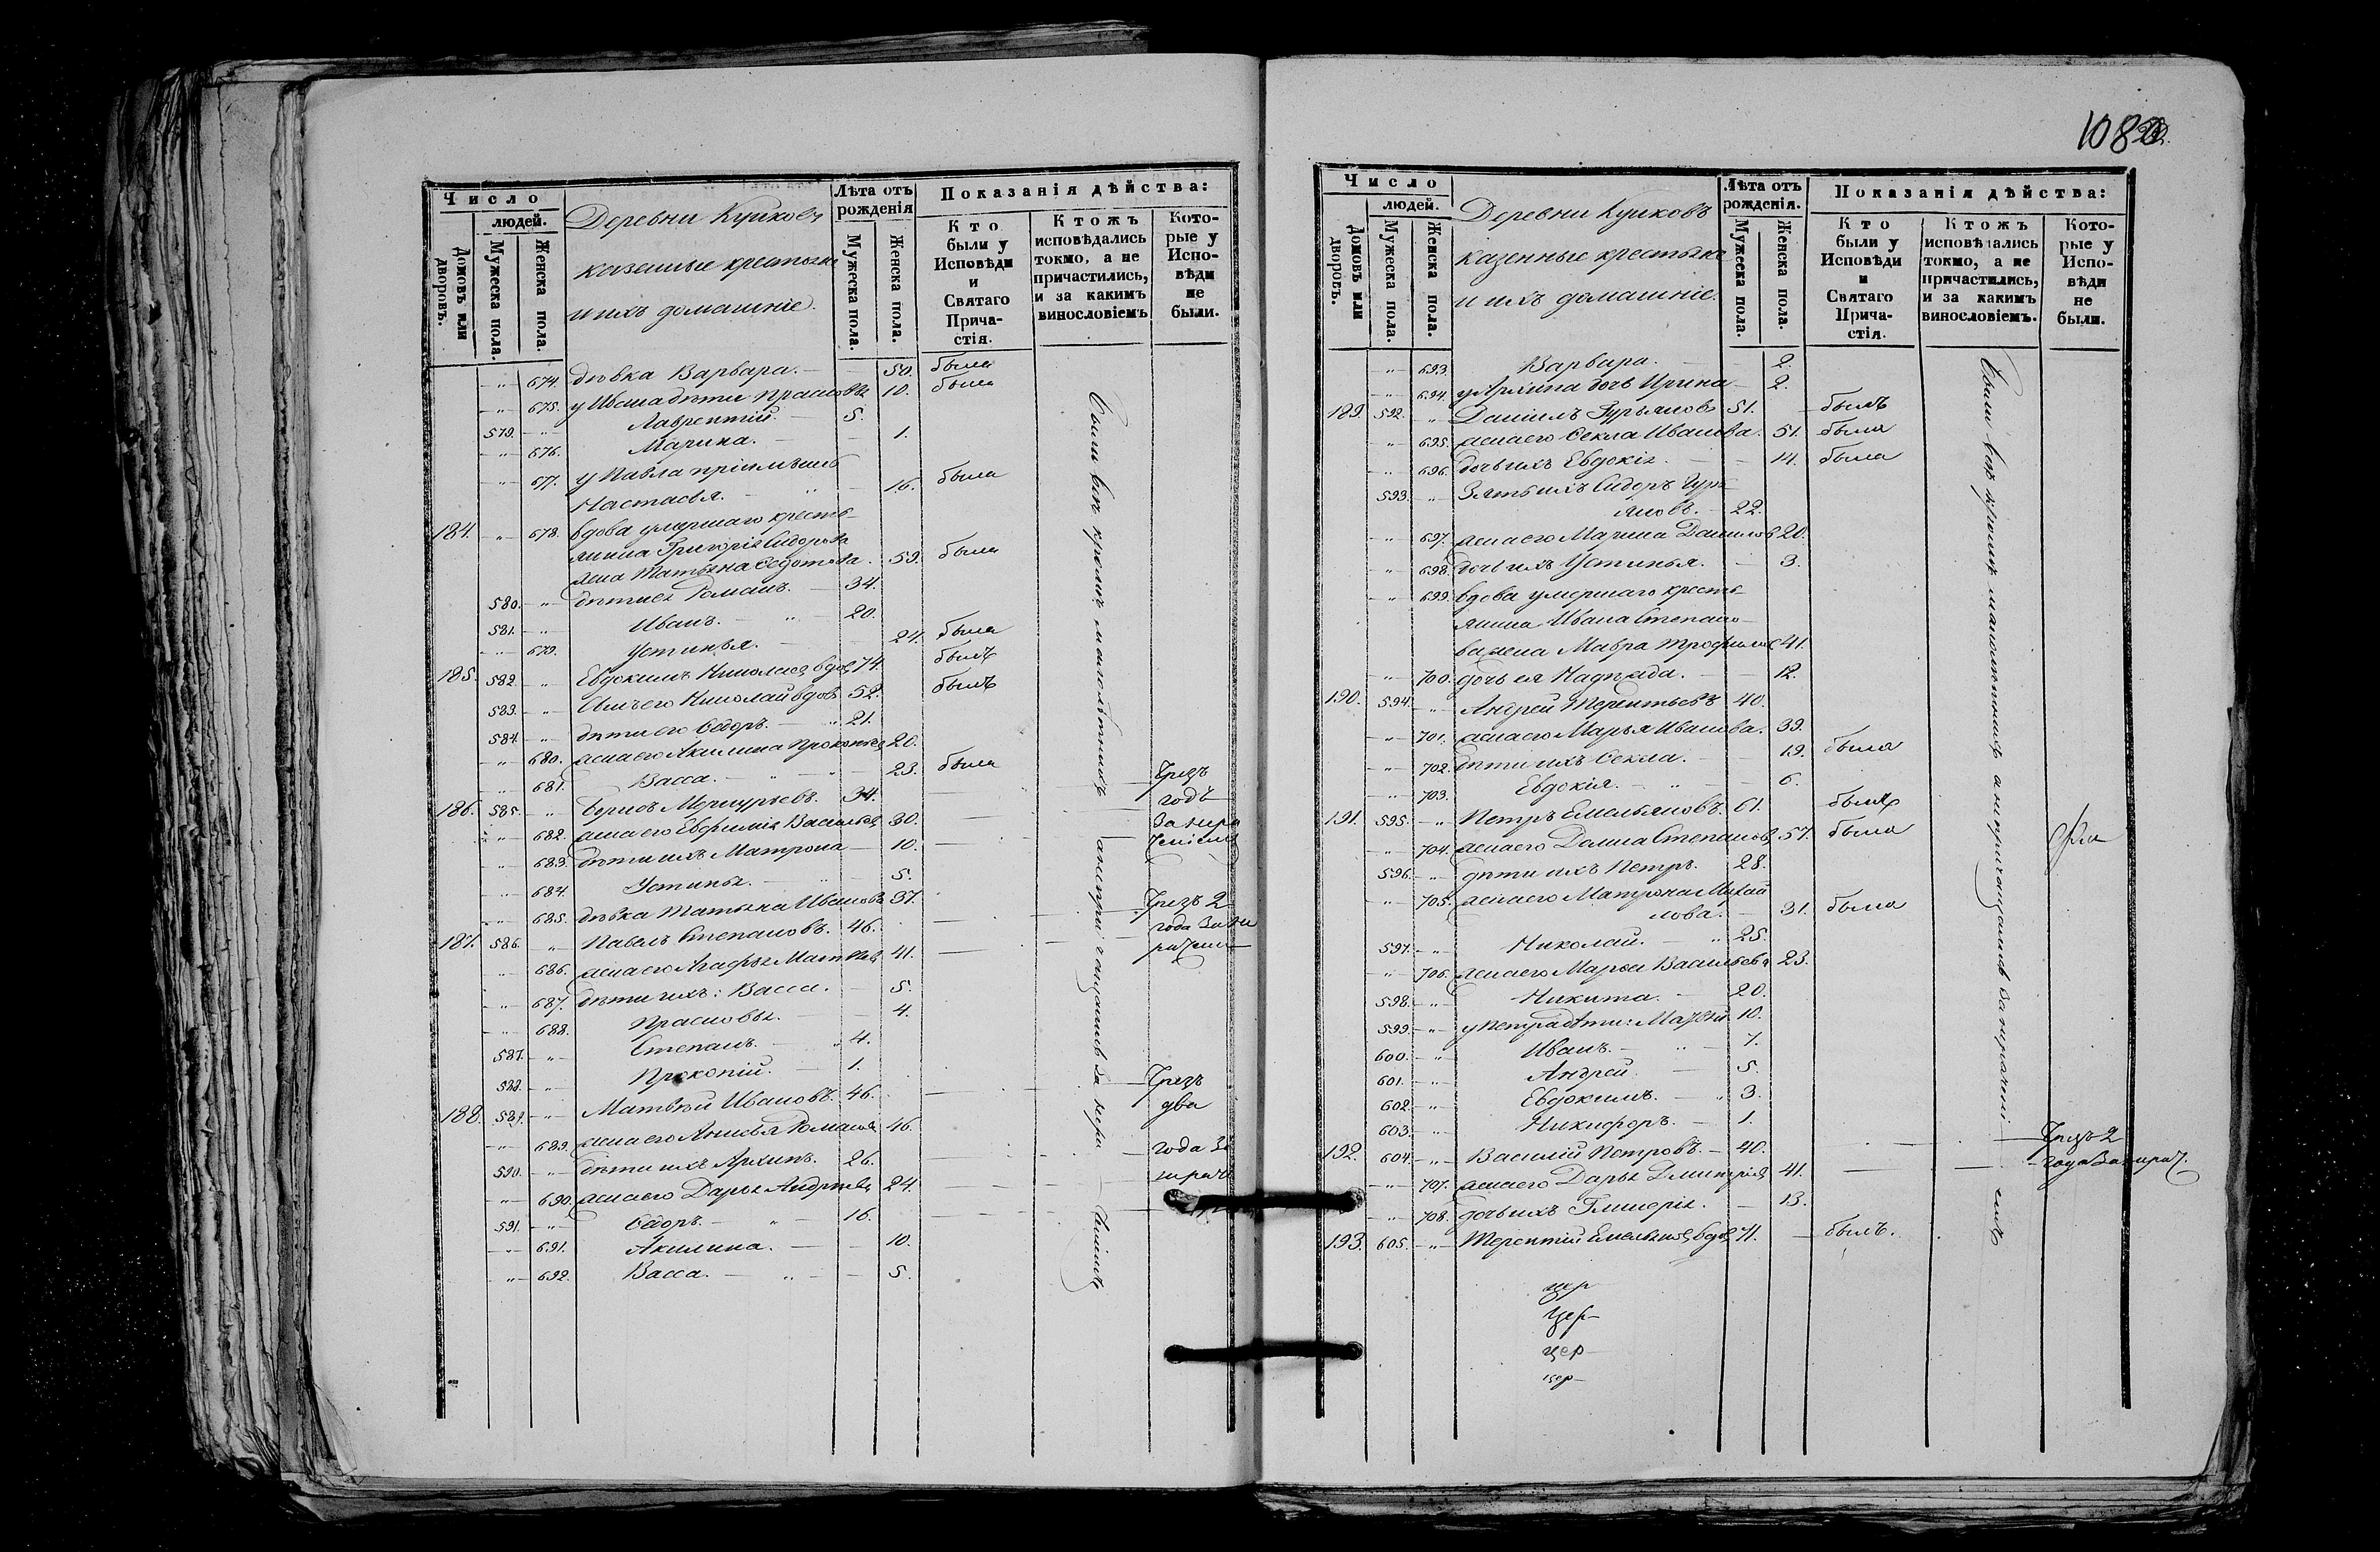 Число
людей.
Домовъ или дворовъ.
Мужеска пола.
Женска пола.
Деревни Куиковъ
казенные крестьяне
и ихъ домашніе.
Лѣта отъ рожденія
Мужеска пола.
Женска пола.
Показанія дѣйства:
Кто были у Исповѣди и Святаго Прича-стія.
Ктожъ исповѣдались токмо, а не причастились, и за какимъ винословіемъ
Кото-рые у Испо-вѣди не были.
" 674. дѣвка Варвара. 50. была
" 675. у Ивана дѣти Прасковья 10. была
579. " Лаврентій. 5.
" 676. Марина. 1.
" 677. у Павла пріемышъ
Настасья. 16. была
184. " 678. вдова умершаго кресть-
янина Григорія Сидорова
жена Татьяна Ѳедотова. 59. была
580. " дѣти ея Романъ. 34.
581. " Иванъ. 20.
" 679. Устинья. 24. была
185. 582. " Евдокимъ Николаевъ вдов 74. былъ
583. " Сынъ его Николай вдов 52. былъ
584. " дѣти его Ѳедоръ. 21.
" 680. жена его Акилина Прокопьев 20.
" 681. Васса. 23. была
186. 585. " Борисъ Меркурьевъ. 34. Чрезъ
годъ
" 682. жена его Евфимія Васильев 30. За нера
" 683. дѣти ихъ Матрона 10. ченіемъ
" 684. Устинья. 5.
" 685. дѣвка Татьяна Иванова 37. Чрезъ 2
187. 586. " Павелъ Степановъ. 46. года За не
" 686. жена его Агафья Матвѣев 41. раченіе
" 687. дѣти ихъ: Васса. 5.
" 688. Прасковья. 4.
587. " Степанъ. 4.
588. " Прокопій. 1.
188. 589. " Матвѣй Ивановъ. 46. Чрезъ
два
" 689. жена его Анисья Романов 46.
590. " дѣти ихъ Архипъ. 26. года За
" 690. жена его Дарья Андреев 24. нерач
591. " Ѳедоръ. 16.
" 691. Акилина. 10.
" 692. Васса. 5.
Были всѣ кромѣ малолѣтнихъ а непричащались за нераченіемъ
108
Число
людей.
Домовъ или дворовъ.
Мужеска пола.
Женска пола.
Деревни Куиковъ
казенные крестьяне
и ихъ домашніе.
Лѣта отъ рожденія.
Мужеска пола.
Женска пола.
Показанія дѣйства:
Кто были у Исповѣди и Святаго Прича-стія.
Ктожъ исповѣдались токмо, а не причастились, и за какимъ винословіемъ.
Кото-рые у Испо-вѣди не были.
" 693. Варвара. 2.
" 694. у Архипа дочь Ирина 2.
189. 592. " Даніилъ Гурьяновъ 51. былъ
" 695. жена его Ѳекла Иванова. 51. была
" 696. дочь ихъ Евдокія. 14. была
593. " Зять ихъ Сидоръ Гурь
яновъ. 22.
" 697. жена его Марина Данилов 20.
" 698. дочь ихъ Устинья. 3.
" 699. вдова умершаго кресть-
янина Ивана Степано-
ва жена Мавра Трофимов 41.
" 700. дочь ея Надежда. 12.
190. 594. " Андрей Терентьевъ 40.
" 701. жена его Марья Иванова. 39.
" 702. дѣти ихъ Ѳекла. 19. была
" 703. Евдокія. 6.
191. 595. " Петръ Емельяновъ. 61. былъ
" 704. жена его Домна Степанов 57. была
596. " дѣти ихъ Петръ. 28.
" 705. жена его Матрона Михай
лова. 31. была
597. " Николай. 25.
" 706. жена его Марѳа Васильева 23.
598. " Никита. 20.
599. " у Петра дѣти: Матвѣй 10.
600. " Иванъ. 7.
601. " Андрей 5.
602. " Евдокимъ. 3.
603. " Никифоръ. 1.
192. 604. " Василій Петровъ. 40. Чрезъ 2
" 707. жена его Дарья Дмитріев 41. года За нерач.
" 708. дочь ихъ Гликерія. 13.
193. 605. " Терентій Емельянов вдов 71. былъ.
Были всѣ кромѣ малолѣтнихъ а непричащались за нераченіемъ
цер
цер
цер
цер